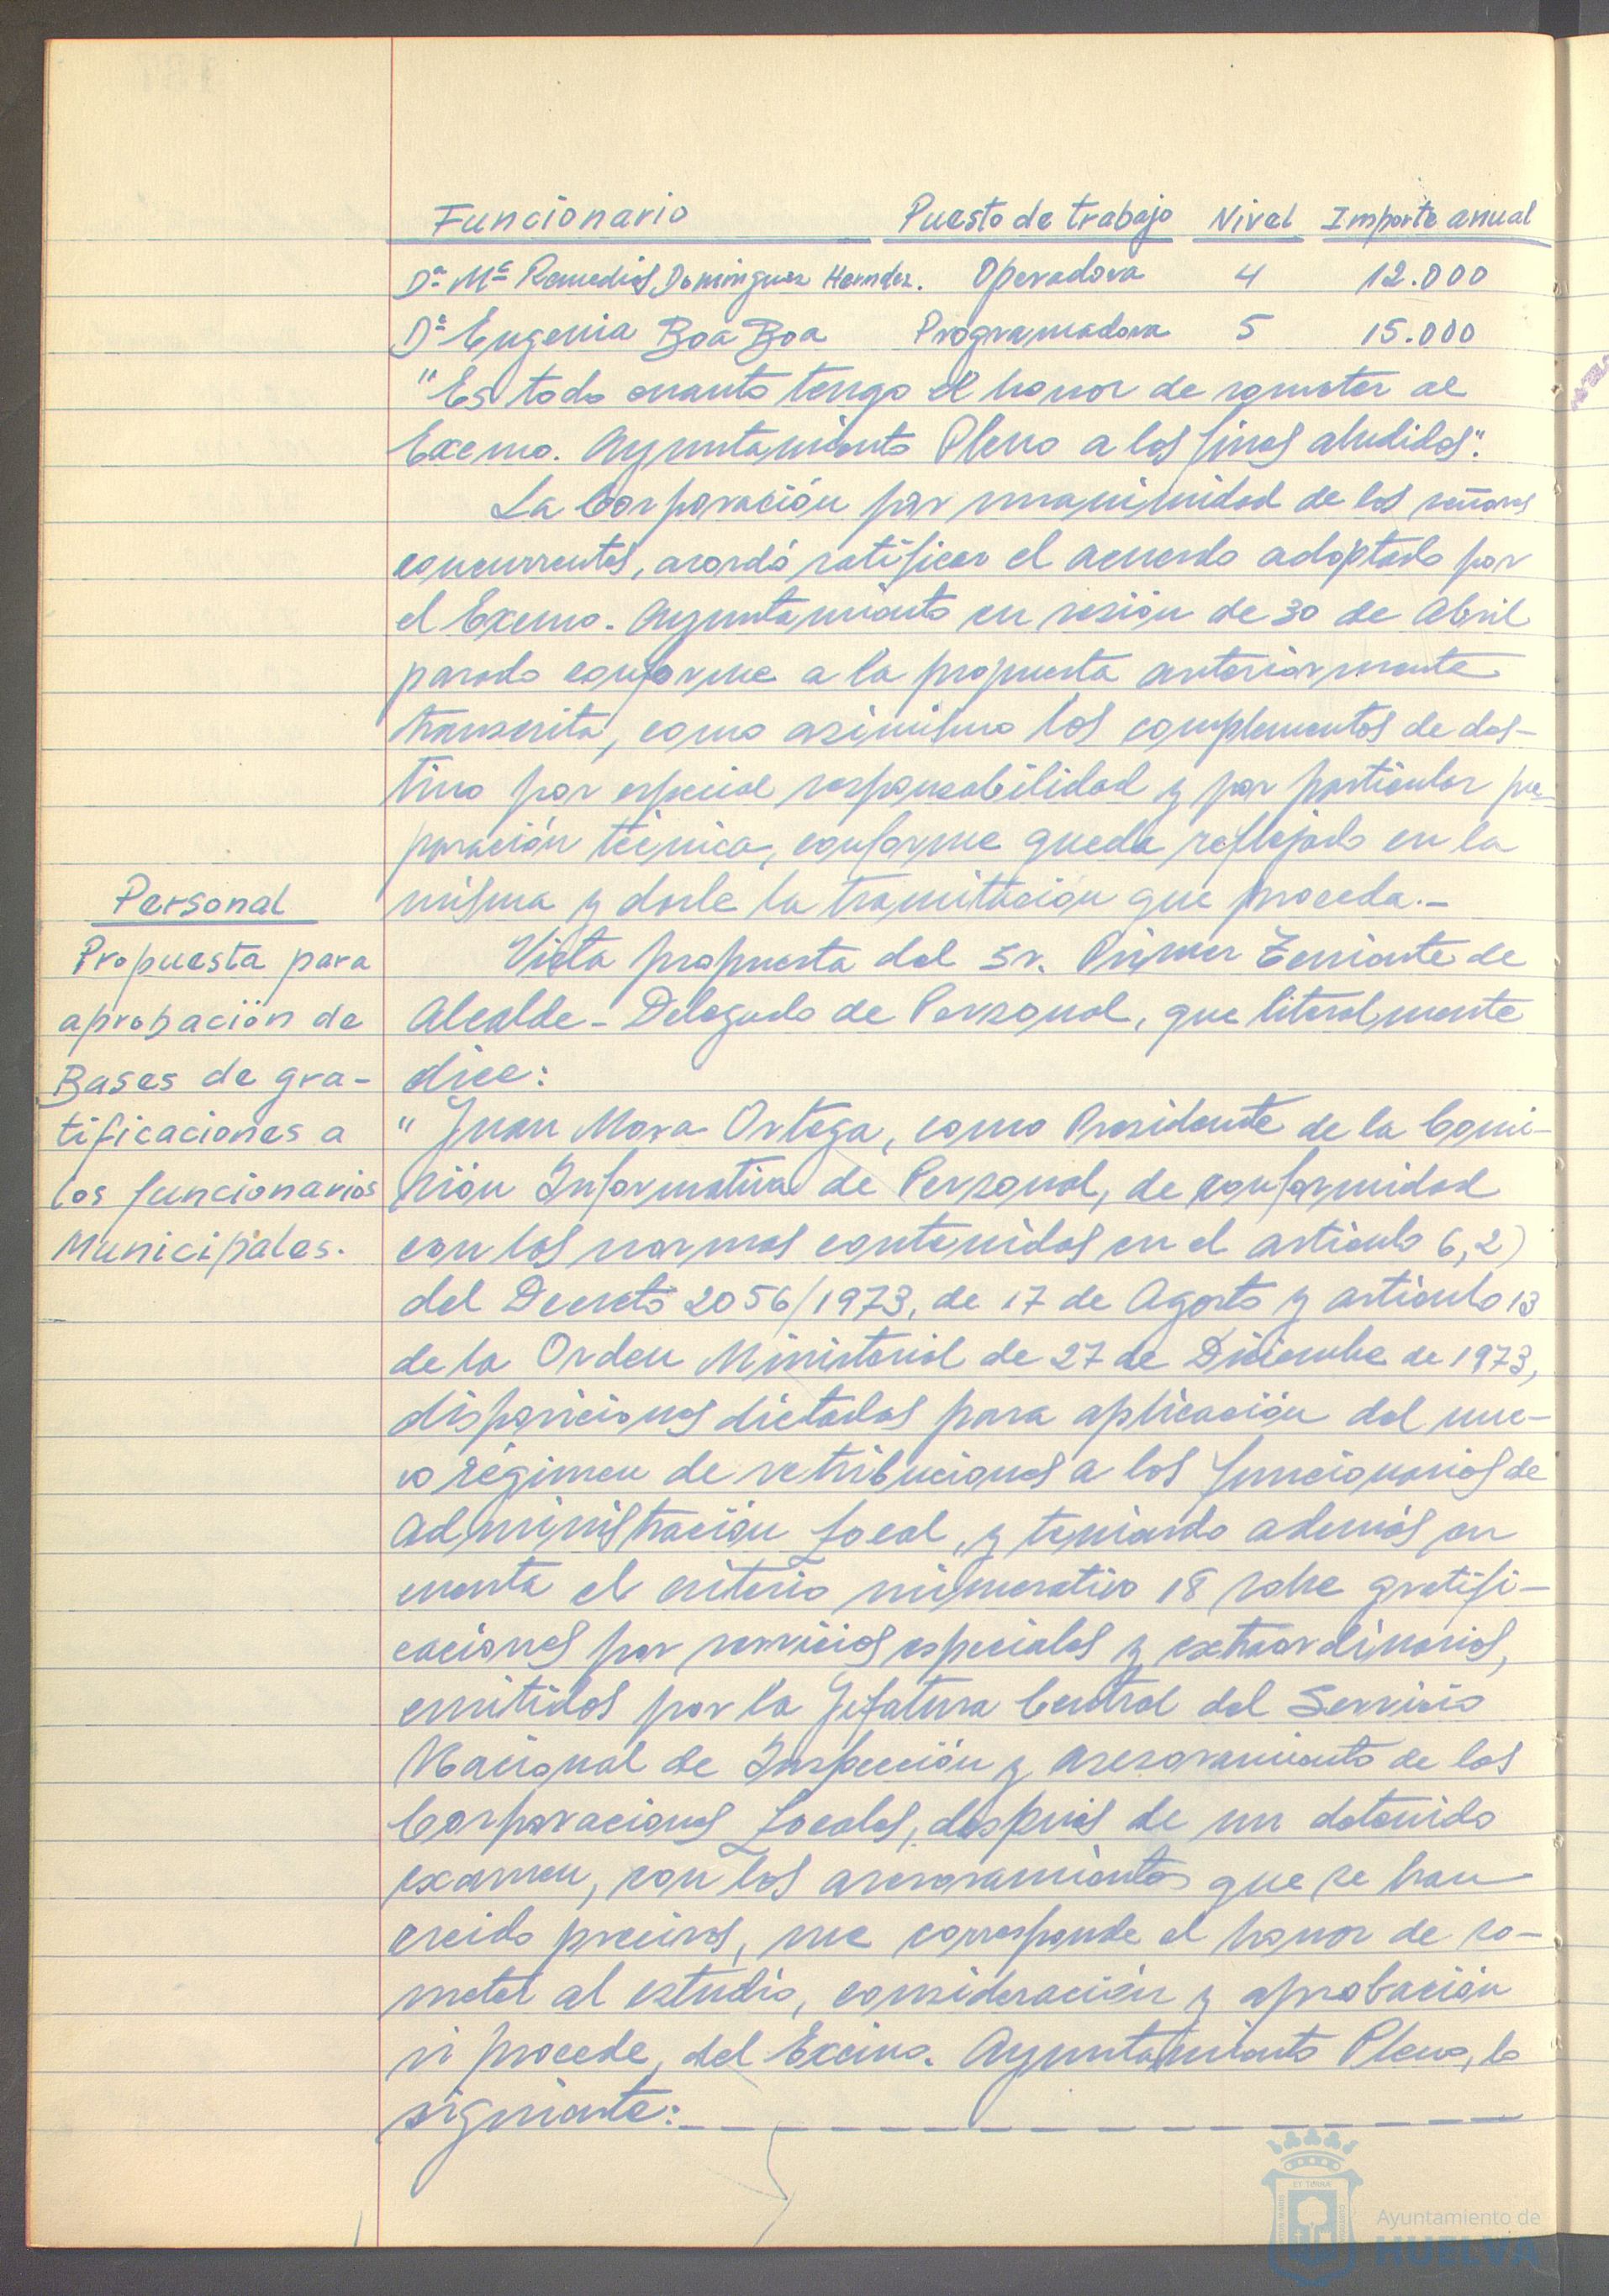 Funcionario Puesto de trabajo Nivel Importe anual
Dª Mª Remedios Dominguez Herndez. Operadora 4 12.000
Dª Eugenia Boa Boa Programadora 5 15.000
"Es todo cuanto tengo el honor de someter al
Excmo. Ayuntamiento Pleno a los fines aludidos".
La Corporación por unanimidad de los señores
concurrentes, acordó ratificar el acuerdo adoptado por
el Excmo. Ayuntamiento en sesión de 30 de Abril
pasado conforme a la propuesta anteriormente
transcrita, como asimismo los complementos de des-
tino por especial responsabilidad y por particular pre-
paración técnica, conforme queda reflejado en la
misma y darle la tramitación que proceda.-
Personal
Propuesta para
aprobación de
Bases de gra-
tificaciones a
los funcionarios
Municipales.
Vista propuesta del Sr. Primer Teniente de
Alcalde-Delegado de Personal, que literalmente
dice:
"Juan Mora Ortega, como Presidente de la Comi-
sión Informativa de Personal, de conformidad
con las normas contenidas en el artículo 6,2)
del Decreto 2056/1973, de 17 de Agosto y artículo 13
de la Orden Ministerial de 27 de Diciembre de 1973,
disposiciones dictadas para aplicación del nue-
vo régimen de retribuciones a los funcionarios de
Administración Local, y teniendo además en
cuenta el criterio numerativo 18 sobre gratifi-
caciones por servicios especiales y extraordinarios,
emitidos por la Jefatura Central del Servicio
Nacional de Inspección y Asesoramiento de las
Corporaciones Locales, después de un detenido
examen, con los asesoramientos que se han
creido precisos, me corresponde el honor de so-
meter al estudio, consideración y aprobación
si procede, del Excmo. Ayuntamiento Pleno, lo
siguiente:
Ayuntamiento de
HUELVA